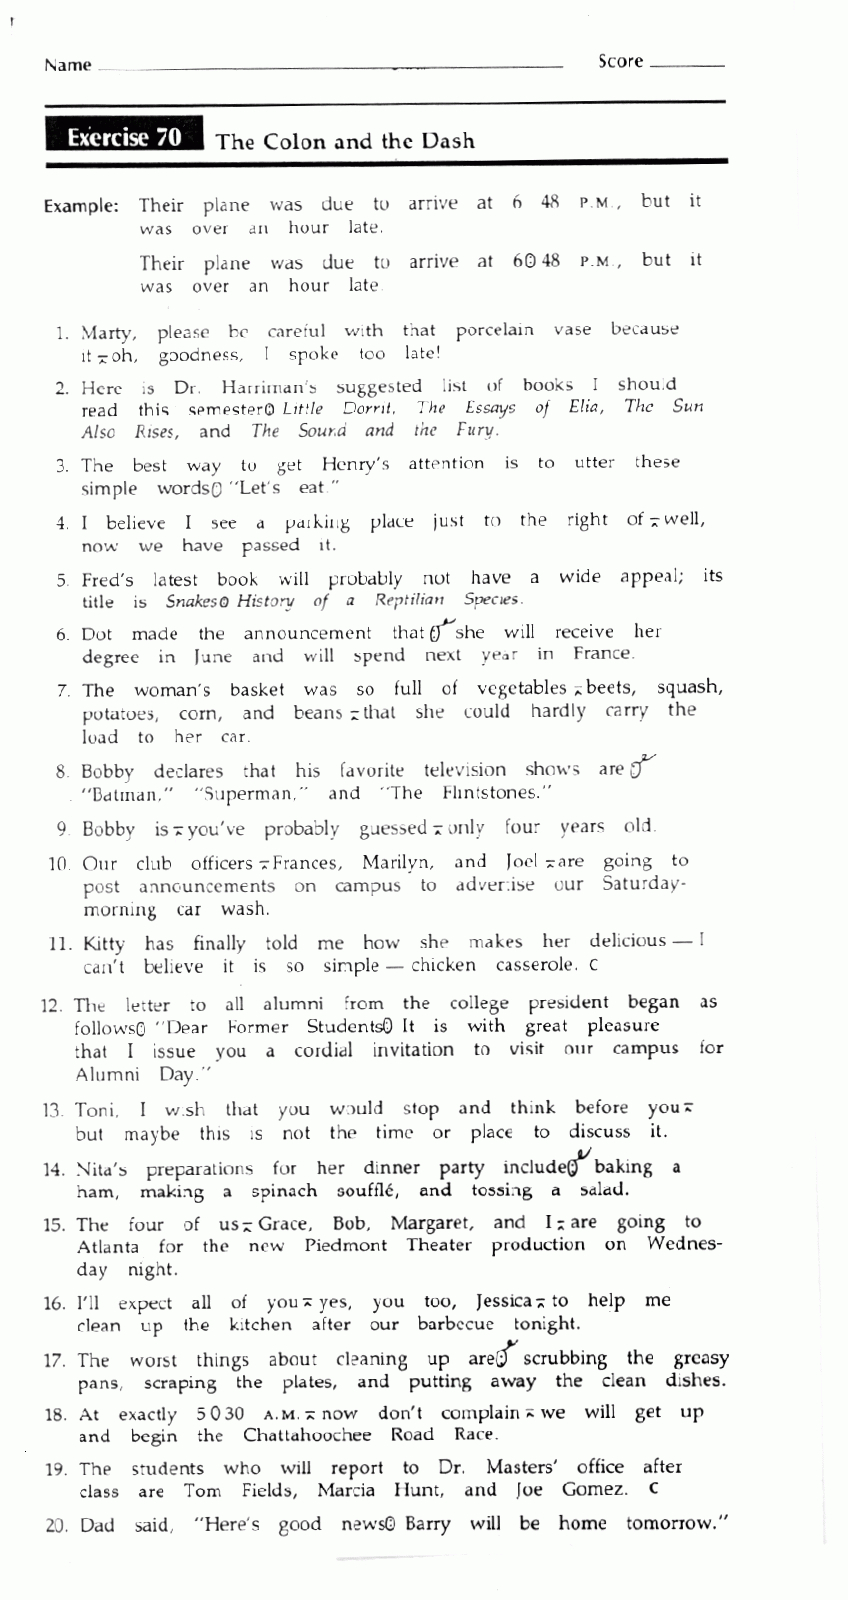 Name Score
Exercise 70 The Colon and the Dash
Example: Their plane was due to arrive at 6 48 P.M., but it
was over an hour late.
Their plane was due to arrive at 6:48 P.M., but it
was over an hour late.
1. Marty, please be careful with that porcelain vase because
it — oh, goodness, I spoke too late!
2. Here is Dr. Harriman's suggested list of books I should
read this semester: Little Dorrit, The Essays of Elia, The Sun
Also Rises, and The Sound and the Fury.
3. The best way to get Henry's attention is to utter these
simple words: "Let's eat."
4. I believe I see a parking place just to the right of — well,
now we have passed it.
5. Fred's latest book will probably not have a wide appeal; its
title is Snakes: History of a Reptilian Species.
6. Dot made the announcement that: she will receive her
degree in June and will spend next year in France.
7. The woman's basket was so full of vegetables — beets, squash,
potatoes, corn, and beans — that she could hardly carry the
load to her car.
8. Bobby declares that his favorite television shows are:
"Batman," "Superman," and "The Flintstones."
9. Bobby is — you've probably guessed — only four years old.
10. Our club officers — Frances, Marilyn, and Joel — are going to
post announcements on campus to advertise our Saturday-
morning car wash.
11. Kitty has finally told me how she makes her delicious — I
can't believe it is so simple — chicken casserole. C
12. The letter to all alumni from the college president began as
follows: "Dear Former Students: It is with great pleasure
that I issue you a cordial invitation to visit our campus for
Alumni Day."
13. Toni, I wish that you would stop and think before you —
but maybe this is not the time or place to discuss it.
14. Nita's preparations for her dinner party include: baking a
ham, making a spinach soufflé, and tossing a salad.
15. The four of us — Grace, Bob, Margaret, and I — are going to
Atlanta for the new Piedmont Theater production on Wednes-
day night.
16. I'll expect all of you — yes, you too, Jessica — to help me
clean up the kitchen after our barbecue tonight.
17. The worst things about cleaning up are: scrubbing the greasy
pans, scraping the plates, and putting away the clean dishes.
18. At exactly 5:30 A.M. — now don't complain — we will get up
and begin the Chattahoochee Road Race.
19. The students who will report to Dr. Masters' office after
class are Tom Fields, Marcia Hunt, and Joe Gomez. C
20. Dad said, "Here's good news: Barry will be home tomorrow."